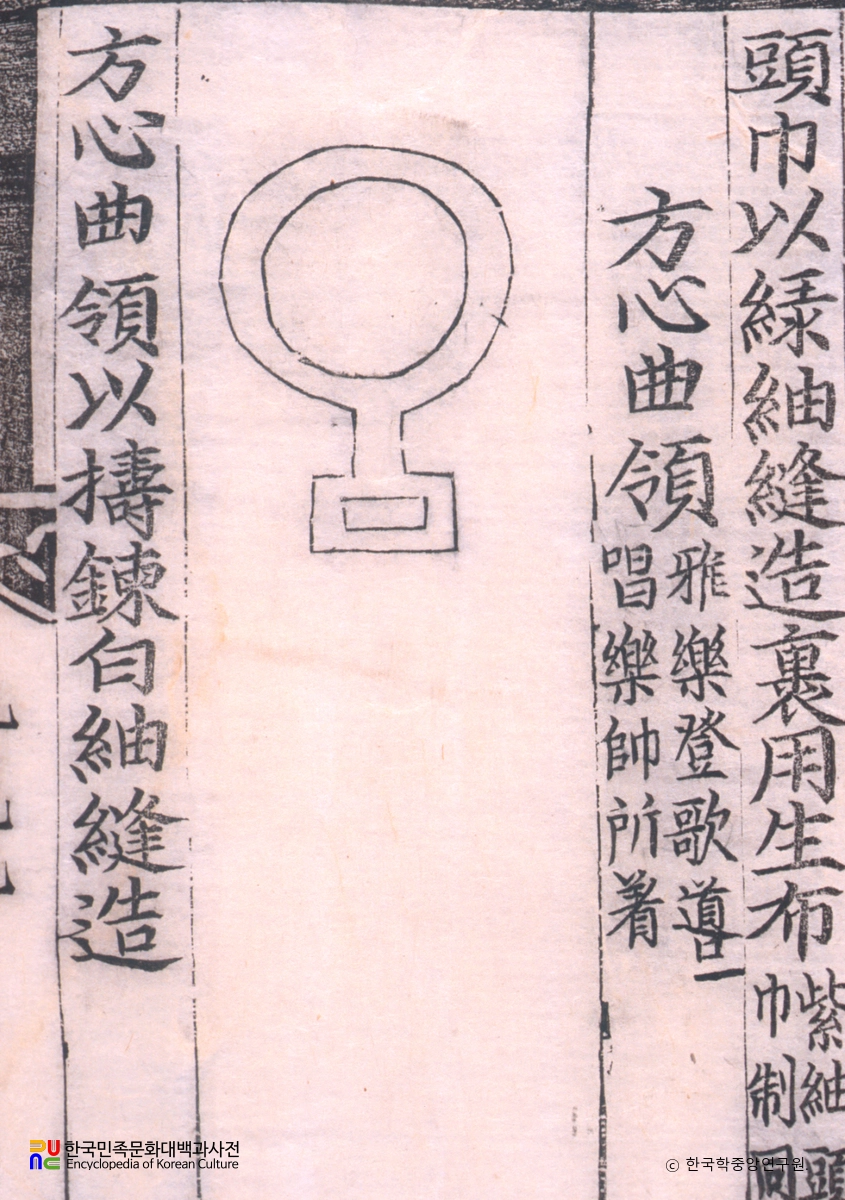 頭巾以緑紬縫造裏用生布
紫紬頭
巾制同
方心曲領
雅樂登歌
唱樂帥所着
方心曲領以擣鍊白紬縫造
한국민족문화대백과사전
Encyclopedia of Korean Culture
© 한국학중앙연구원